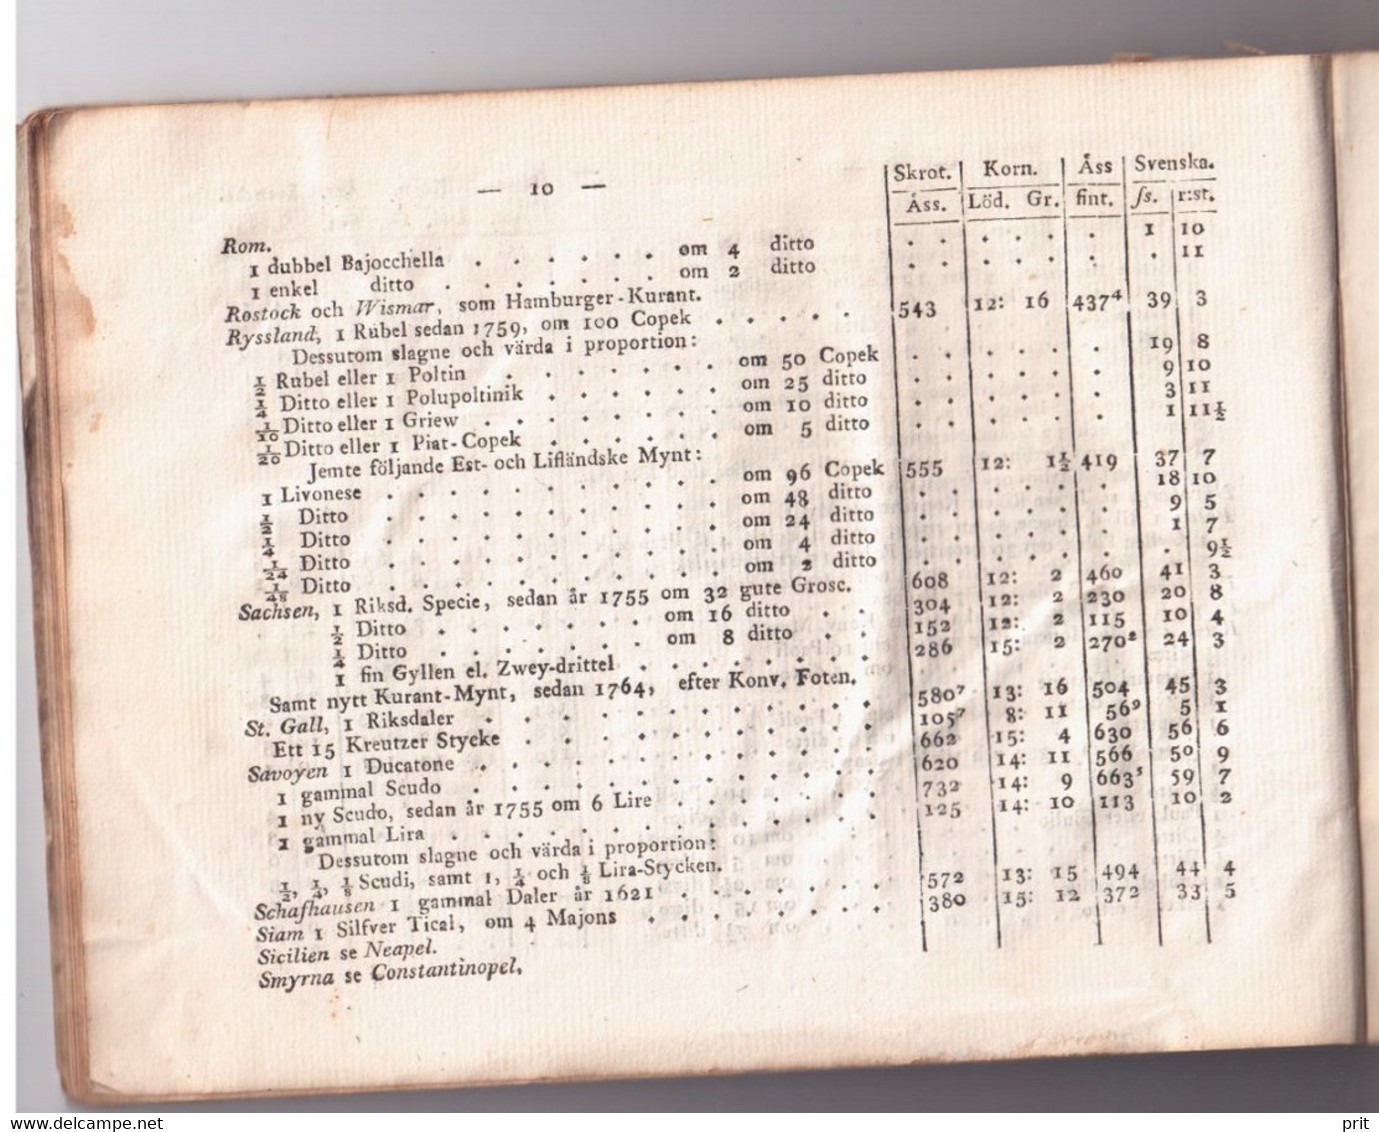 — 10 —
Skrot. | Korn. | Åss | Svenska.
Åss. | Löd. Gr. | fint. | ſs. | r:st.
Rom.
1 dubbel Bajocchella . . . . . . om 4 ditto . . . . . . 1 10
1 enkel ditto . . . . . . . om 2 ditto . . . . . . . 11
Rostock och Wismar, som Hamburger-Kurant.
Ryssland, 1 Rubel sedan 1759, om 100 Copek . . . . . 543 12: 16 437⁴ 39 3
Dessutom slagne och värda i proportion:
½ Rubel eller 1 Poltin . . . . . . om 50 Copek . . . . . . 19 8
¼ Ditto eller 1 Polupoltinik . . . . . om 25 ditto . . . . . . 9 10
1/10 Ditto eller 1 Griew . . . . . . om 10 ditto . . . . . . 3 11
1/20 Ditto eller 1 Piat-Copek . . . . . om 5 ditto . . . . . . 1 11½
Jemte följande Est- och Lifländske Mynt:
1 Livonese . . . . . . . . . . om 96 Copek 555 12: 1½ 419 37 7
½ Ditto . . . . . . . . . . om 48 ditto . . . . . . 18 10
¼ Ditto . . . . . . . . . . om 24 ditto . . . . . . 9 5
1/24 Ditto . . . . . . . . . . om 4 ditto . . . . . . 1 7
1/48 Ditto . . . . . . . . . . om 2 ditto . . . . . . . 9½
Sachsen, 1 Riksd. Specie, sedan år 1755 om 32 gute Grosc. 608 12: 2 460 41 3
½ Ditto . . . . . . . om 16 ditto . . 304 12: 2 230 20 8
¼ Ditto . . . . . . . om 8 ditto . . 152 12: 2 115 10 4
1 fin Gyllen el. Zwey-drittel . . . . . . . 286 15: 2 270² 24 3
Samt nytt Kurant-Mynt, sedan 1764, efter Konv. Foten.
St. Gall, 1 Riksdaler . . . . . . . . . . 580⁷ 13: 16 504 45 3
Ett 15 Kreutzer Stycke . . . . . . . . . 105⁷ 8: 11 56⁹ 5 1
Savoyen 1 Ducatone . . . . . . . . . . 662 15: 4 630 56 6
1 gammal Scudo . . . . . . . . . . 620 14: 11 566 50 9
1 ny Scudo, sedan år 1755 om 6 Lire . . . . . 732 14: 9 663⁵ 59 7
1 gammal Lira . . . . . . . . . . 125 14: 10 113 10 2
Dessutom slagne och värda i proportion:
½, ¼, ⅛ Scudi, samt 1, ¼ och ⅛ Lira-Stycken.
Schafhausen 1 gammal Daler år 1621 . . . . . . 572 13: 15 494 44 4
Siam 1 Silfver Tical, om 4 Majons . . . . . . 380 15: 12 372 33 5
Sicilien se Neapel.
Smyrna se Constantinopel.
www.delcampe.net
prit